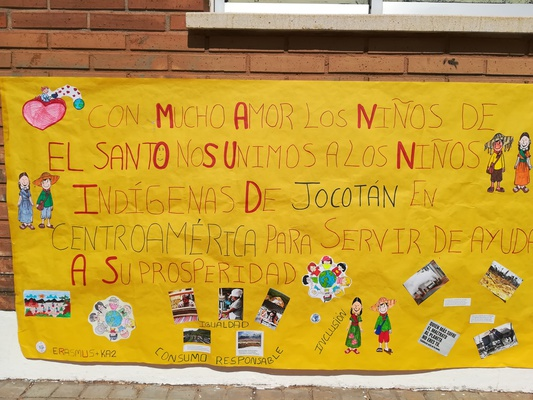 CON MUCHO AMOR LOS NIÑOS DE
EL SANTO NOS UNIMOS A LOS NIÑOS
INDÍGENAS DE JOCOTÁN EN
CENTROAMÉRICA PARA SERVIR DE AYUDA
A SU PROSPERIDAD
IGUALDAD
CONSUMO RESPONSABLE
INCLUSIÓN
ERASMUS+KA2